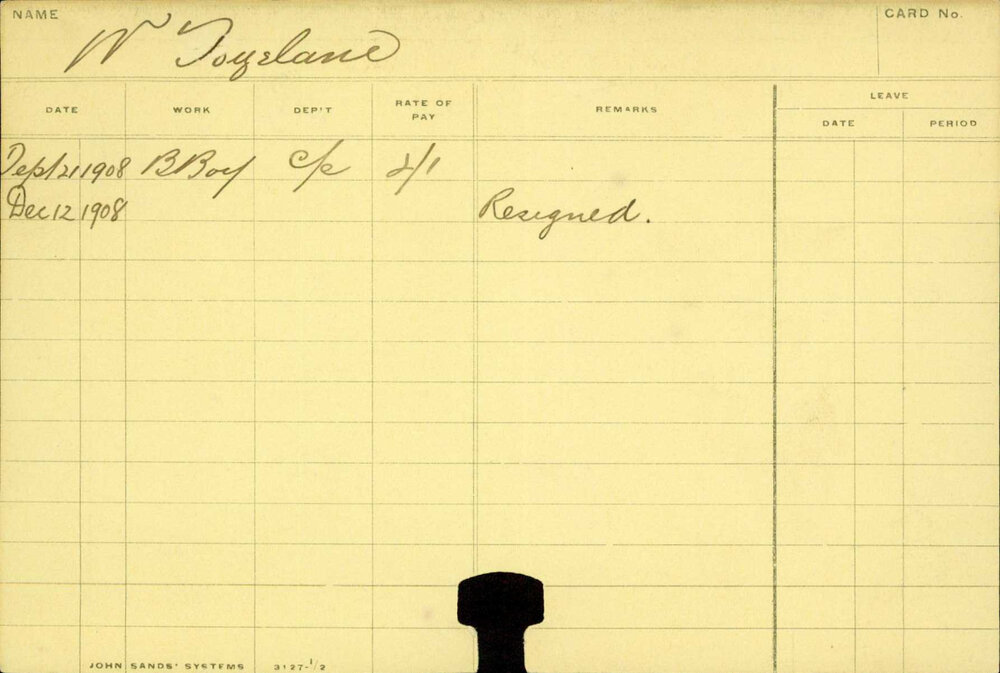 NAME
CARD No.
W Toyelane
DATE WORK DEP'T RATE OF PAY REMARKS LEAVE
DATE PERIOD
Sept 21 1908 B Boy c/e 2/1
Dec 12 1908 Resigned.
JOHN SANDS' SYSTEMS 3127-1/2